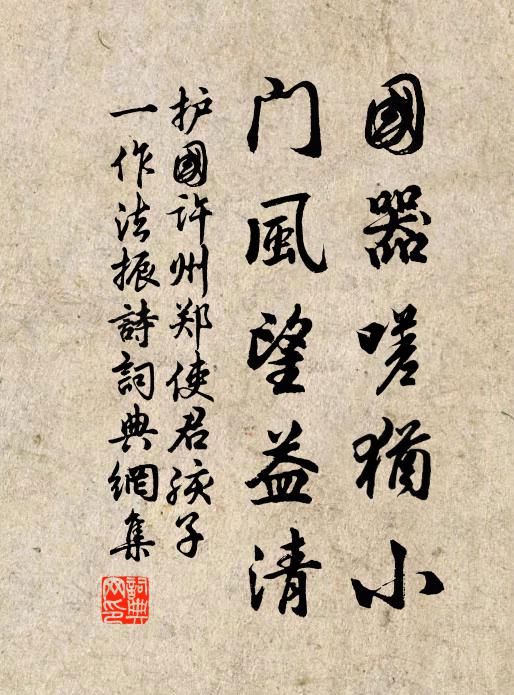 國器嗟猶小
門風望益清
护國許州郑使君孩子
一作法振詩詞典網集
詞典
网印